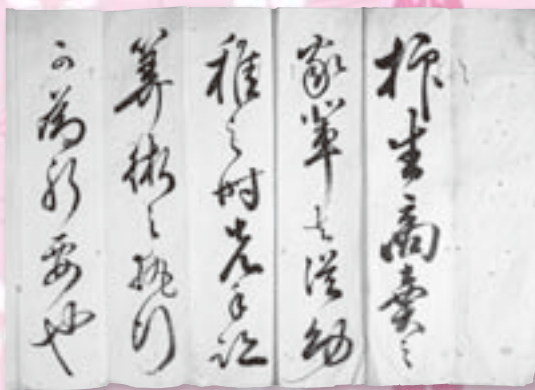 抑生商賣之
家輩者従幼
稚之時先手跡
算術之執行
可為肝要也